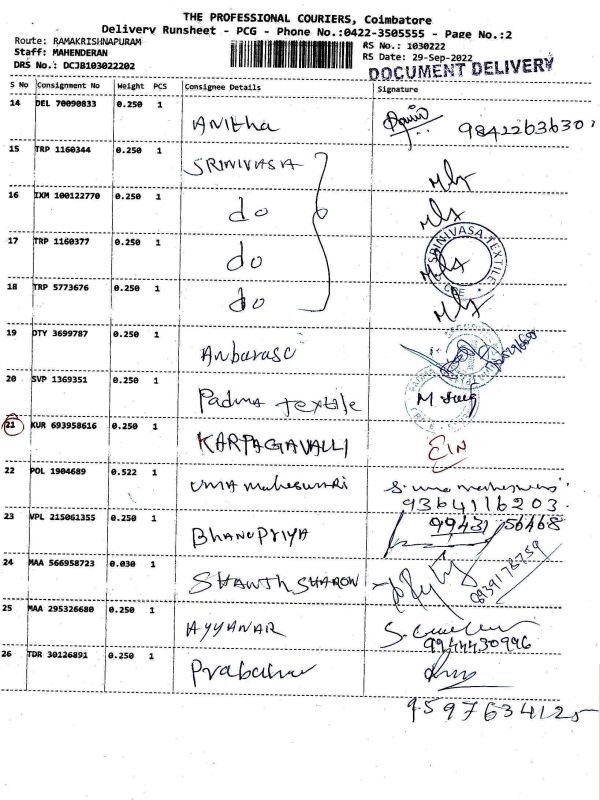 THE PROFESSIONAL COURIERS, Coimbatore
Delivery Runsheet - PCG - Phone No.:0422-3505555 - Page No.:2
Route: RAMAKRISHNAPURAM
RS No.: 1030222
Staff: MAHENDERAN
RS Date: 29-Sep-2022
DRS No.: DCJB103022202
DOCUMENT DELIVERY
S No Consignment No Weight PCS Consignee Details Signature
14 DEL 70090833 0.250 1 Anitha 9842263630
15 TRP 1160344 0.250 1 SRINIVASA
16 IXM 100122770 0.250 1 do
17 TRP 1160377 0.250 1 do
SRINIVASA TEXTILE
CBE
18 TRP 5773676 0.250 1 do
19 DTY 3699787 0.250 1 Anbarasc
20 SVP 1369351 0.250 1 Padma textile
21 KUR 693958616 0.250 1 KARPAGAVALLI EIN
22 POL 1904689 0.522 1 UMA Maheswari
9364116203
23 VPL 215061355 0.250 1 Bhanupriya 99431 56468
24 MAA 566958723 0.030 1 SHAWTH SHARON
8939178759
25 MAA 295326680 0.250 1 AYYANAR
9944430996
26 TDR 30126891 0.250 1 Prabakar
9597634125